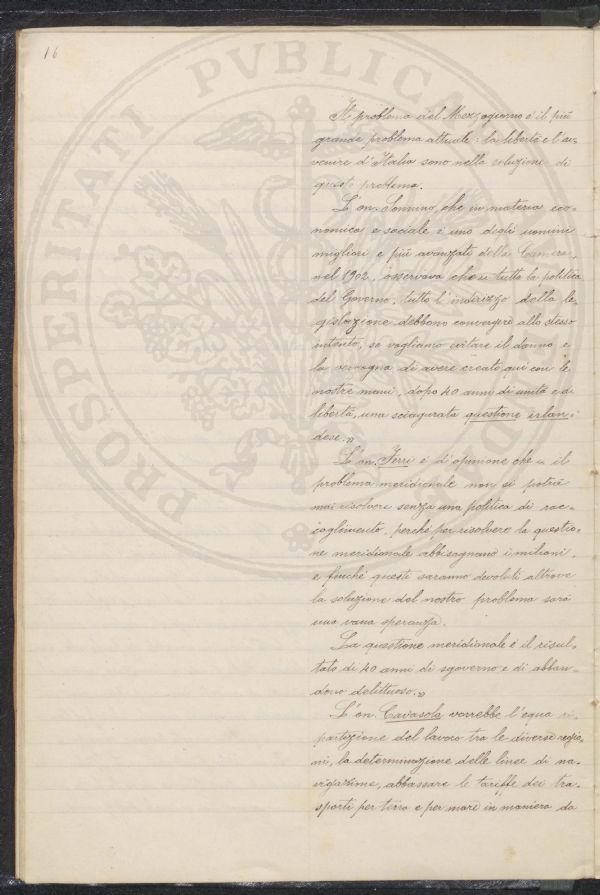 16
Il problema del Mezzogiorno è il più
grande problema attuale: la libertà e l'av-
venire d'Italia sono nella soluzione di
questo problema.
L'on. Sonnino, che in materia eco-
nomica e sociale è uno degli uomini
migliori e più avanzati della Camera,
nel 1902, osservava che "tutta la politica
del Governo, tutto l'indirizzo della le-
gislazione debbono convergere allo stesso
intento, se vogliamo evitare il danno e
la vergogna di avere creato qui con le
nostre mani, dopo 40 anni di unità e di
libertà, una sciagurata questione irlan-
dese."
L'on. Ferri è d'opinione che "il
problema meridionale non si potrà
mai risolvere senza una politica di rac-
coglimento, perché per risolvere la questio-
ne meridionale abbisognano i milioni,
e finché questi saranno devoluti altrove
la soluzione del nostro problema sarà
una vana speranza.
La questione meridionale è il risul-
tato di 40 anni di sgoverno e di abban-
dono delittuoso."
L'on. Cavasola vorrebbe l'equa ri-
partizione del lavoro tra le diverse regio-
ni, la determinazione delle linee di na-
vigazione, abbassare le tariffe dei tra-
sporti per terra e per mare in maniera da
PROSPERITATI PVBLICAE